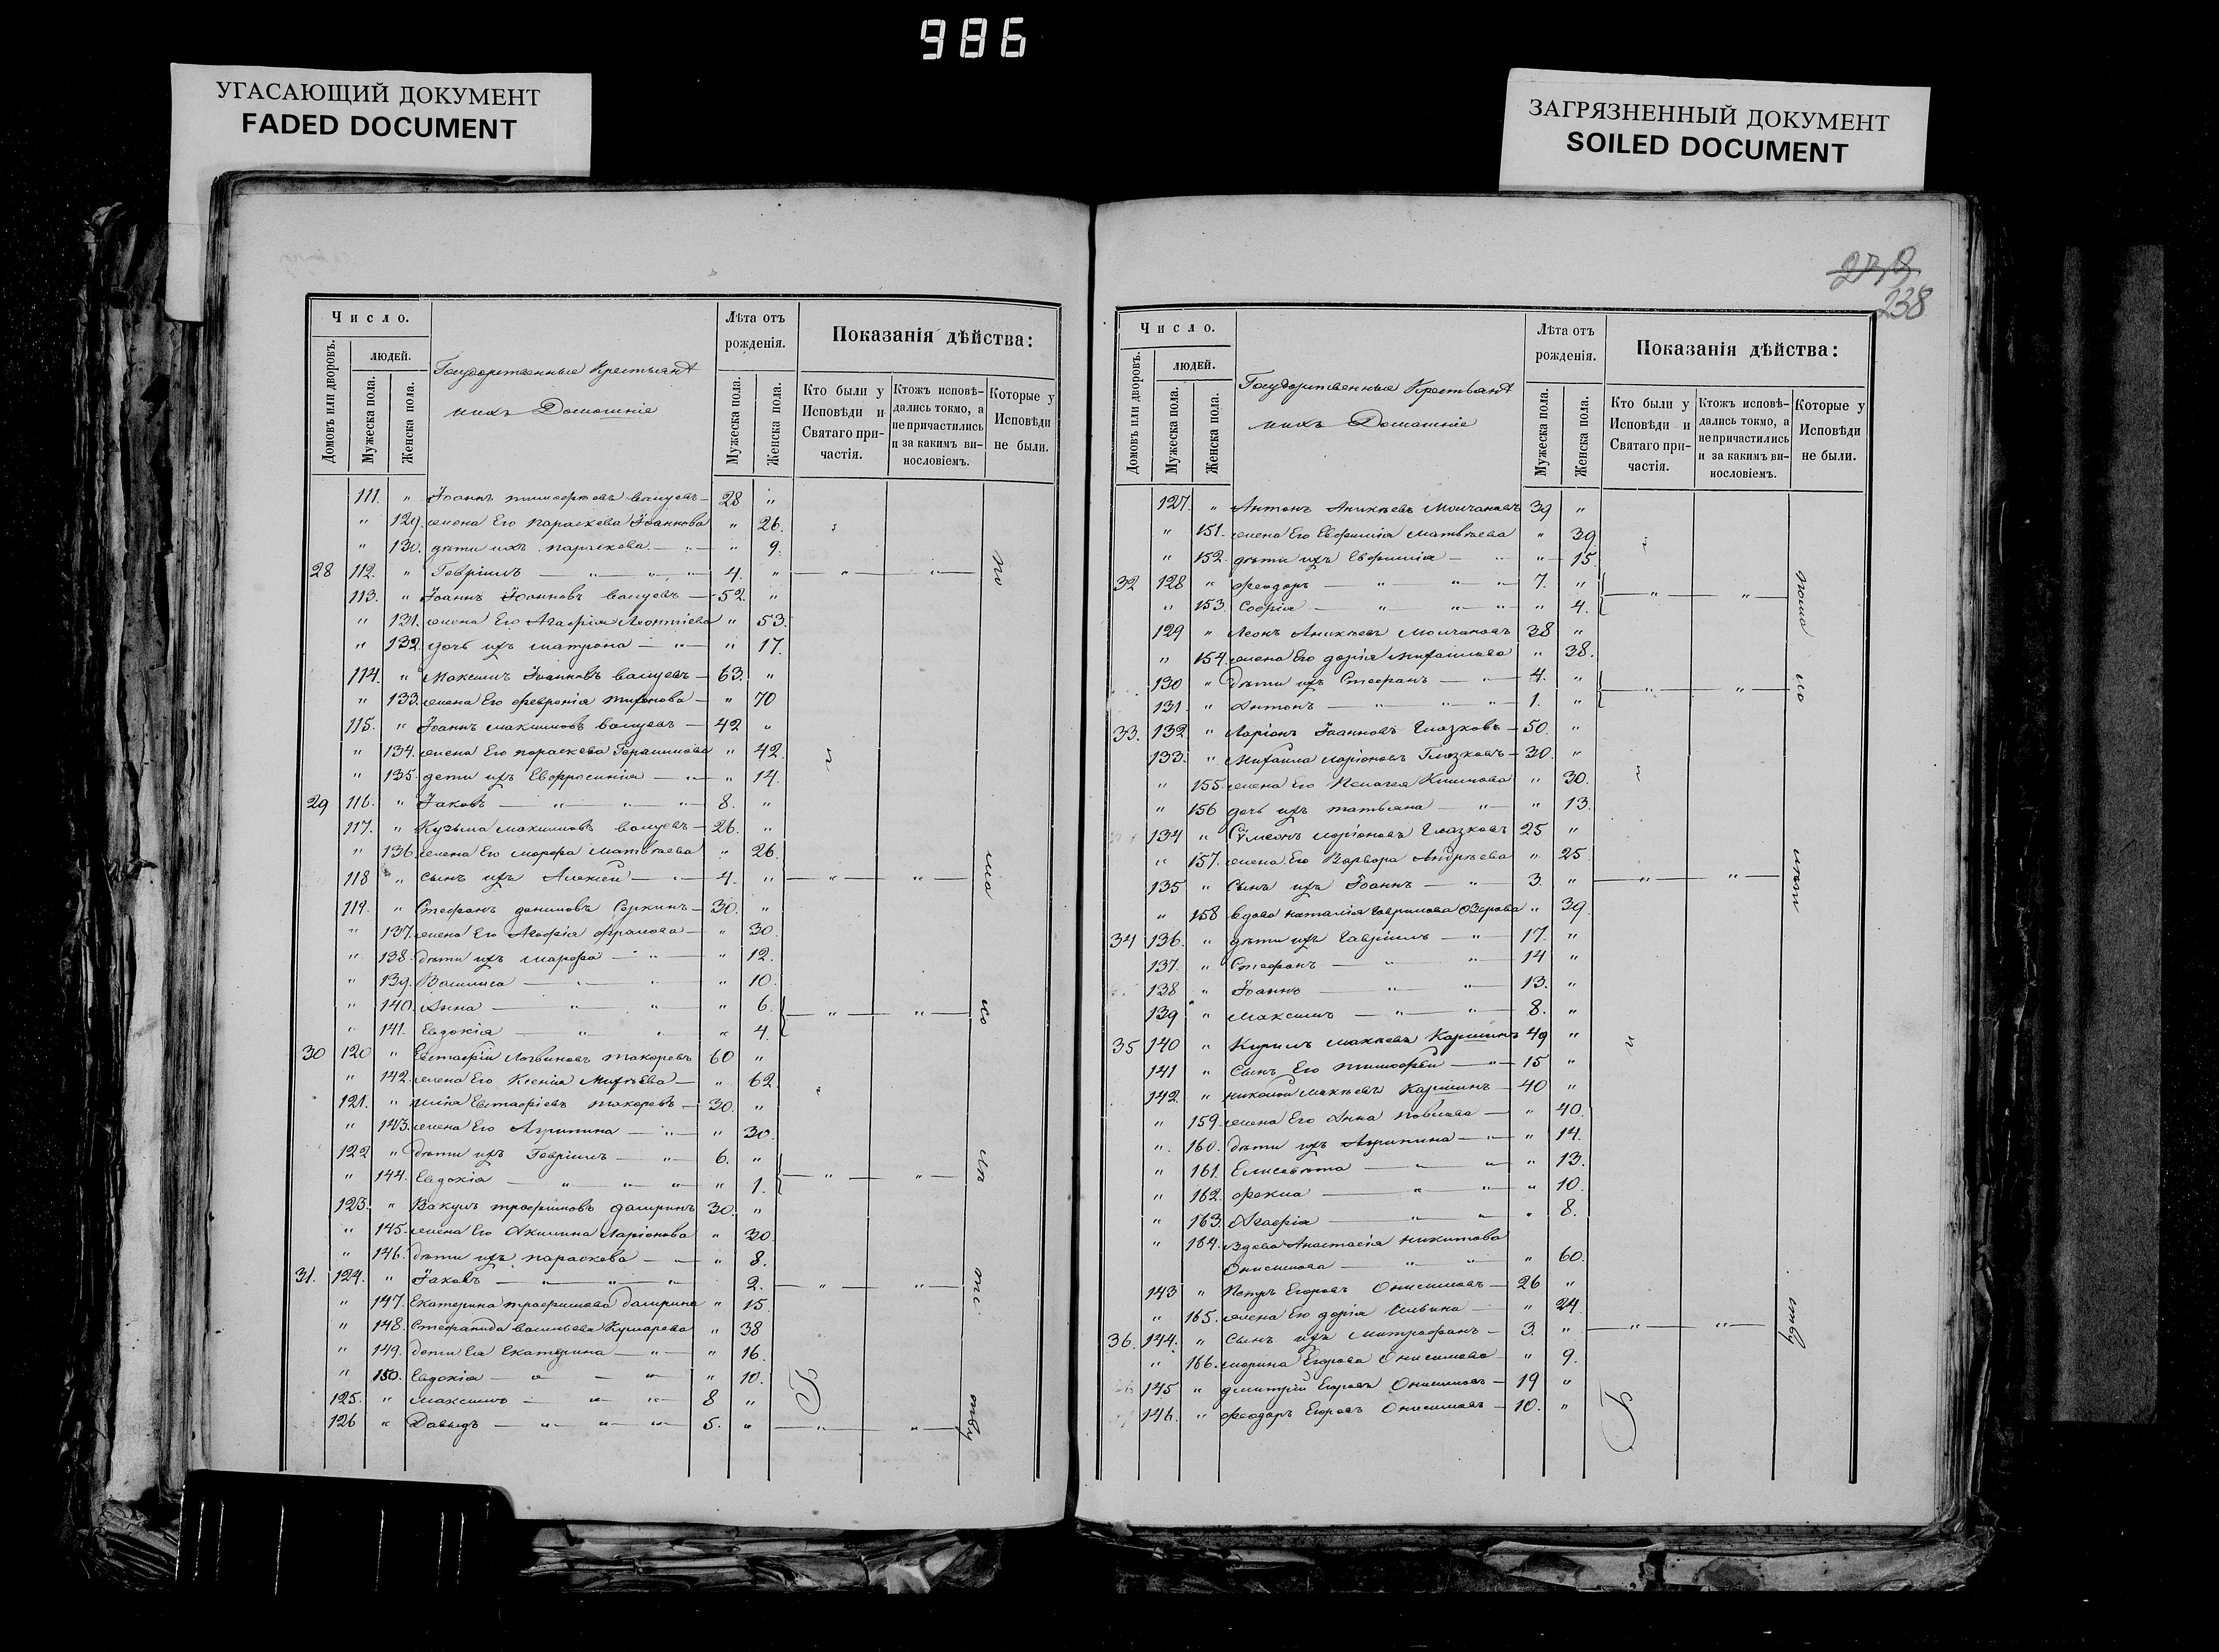 986
УГАСАЮЩИЙ ДОКУМЕНТ
FADED DOCUMENT
ЗАГРЯЗНЕННЫЙ ДОКУМЕНТ
SOILED DOCUMENT
Число.
Домовъ или дворовъ.
людей.
Мужеска пола.
Женска пола.
Государственные Крестьяне
ихъ Домашніе
Лѣта отъ рожденія.
Мужеска пола.
Женска пола.
Показанія дѣйства:
Кто были у Исповѣди и Святаго причастія.
Ктожъ исповѣдались токмо, а не причастились и за какимъ винословіемъ.
Которые у Исповѣди не были.
111. " Іоаннъ Тимофѣевъ 28 "
" 129. жена Его Параскева Іоаннова " 26.
" 130. дѣти ихъ Параскева " 9.
28 112. " Гавріилъ 4. "
113. " Іоаннъ Іоанновъ 52. "
" 131. жена Его Агафія Леонтіева " 53.
" 132. дочь ихъ Матрона " 17.
114. " Максимъ Іоанновъ 63. "
" 133. жена Его Февронія " 70
115. " Іоаннъ Максимовъ 42 "
" 134. жена Его Параскева Герасимова " 42.
" 135. дети ихъ Евфросинія " 14.
29 116. " Іаковъ 8. "
117. " Кузьма Максимовъ 26. "
" 136. жена Его Марфа Матвѣева " 26.
118 " сынъ ихъ Алексей 4. "
119. " Стефанъ 30. "
" 137. жена Его Агафія " 30.
" 138. дѣти ихъ Марфа " 12.
" 139. Василиса " 10.
" 140. Анна " 6.
" 141. Евдокія " 4.
30 120 " Евстафій Логвиновъ Токоревъ 60 "
" 142. жена Его Ксенія Михѣева " 62.
121. " Илія Евстафіевъ Токоревъ 30. "
" 143. жена Его Агрипина " 30.
122 " дѣти ихъ Гавріилъ 6. "
" 144. Евдокія " 1.
123. " Вакулъ Трофимовъ 30. "
" 145. жена Его Акилина Ларіонова " 30.
" 146. дѣти ихъ Параскева " 8.
31. 124. " Іаковъ 2.
" 147. Екатерина Трофимова " 15.
" 148. Стефанида Васильева " 38
" 149. дети Ея Екатерина " 16.
" 150. Евдокія " 10.
125. " Максимъ 8 "
126 " Давыдъ 5. "
238
Число.
Домовъ или дворовъ.
людей.
Мужеска пола.
Женска пола.
Государственные Крестьяне
ихъ Домашніе
Лѣта отъ рожденія.
Мужеска пола.
Женска пола.
Показанія дѣйства:
Кто были у Исповѣди и Святаго причастія.
Ктожъ исповѣдались токмо, а не причастились и за какимъ винословіемъ.
Которые у Исповѣди не были.
127. " Антонъ Аникѣевъ Молчановъ 39 "
" 151. жена Его Евфимія Матвѣева " 39
" 152. дѣти ихъ Евфимія " 15.
32 128 " Феодоръ 7. "
" 153. Софія " 4.
129 " Леонъ Аникѣевъ Молчановъ 38 "
" 154. жена Его Дарія Михайлова " 38.
130 " Дѣти ихъ Стефанъ 4. "
131 " Антонъ 1. "
33. 132 " Ларіонъ Іоанновъ Глазковъ 50. "
133. " Михаила Ларіоновъ Глазковъ 30. "
" 155. жена Его Пелагея Климова " 30.
" 156 дочь ихъ Татьяна " 13.
134 " Сѵмеонъ Ларіоновъ Глазковъ 25 "
" 157. жена Его Варвара Андрѣева " 25
135 " сынъ ихъ Іоаннъ 3. "
" 158 вдова Наталія Гаврилова Озерова " 39.
34 136. " дѣти ихъ Гавріилъ 17. "
137. " Стефанъ 14 "
138 " Іоаннъ 13. "
139 " Максимъ 8. "
35 140 " Кирилъ 49 "
141 " Сынъ Его Тимофей 15 "
142. " Николай 40 "
" 159. жена Его Анна Павлова " 40.
" 160. дѣти ихъ Агрипина " 14.
" 161. Елисавета " 13.
" 162. Фекла " 10.
" 163. Агафія " 8.
" 164. вдова Анастасія Никитова
Онисимова " 60.
143 " Петръ Егоровъ Онисимовъ 26 "
" 165. жена Его Дарія Ильина " 24.
36. 144. " Сынъ ихъ Митрофанъ 3. "
" 166. Марина Егорова Онисимова " 9.
145 " Дмитрій Егоровъ Онисимовъ 19 "
146. " Феодоръ Егоровъ Онисимовъ 10. "